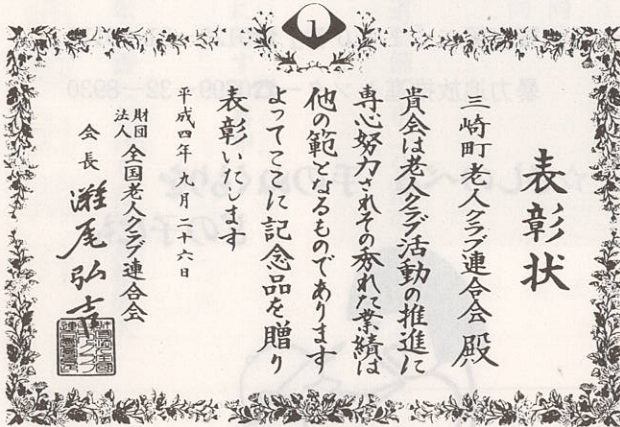 表彰状
三崎町老人クラブ連合会殿
貴会は老人クラブ活動の推進に
専心努力されその秀れた業績は
他の範となるものであります
よってここに記念品を贈り
表彰いたします
平成四年九月二十六日
財団法人 全国老人クラブ連合会
会長 灘尾弘吉